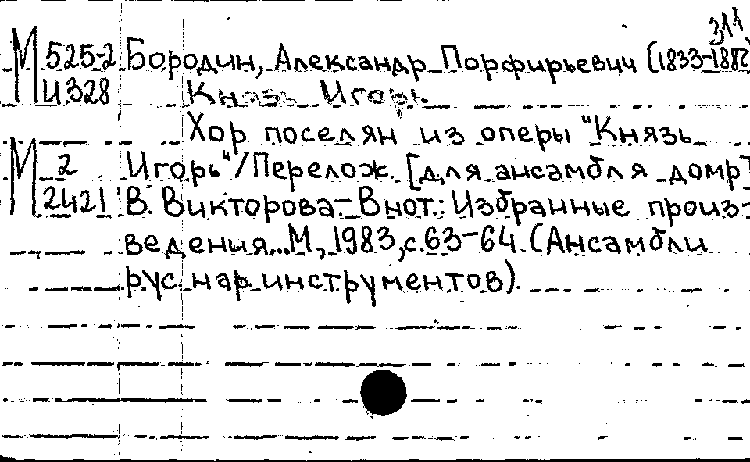 311
М 525-2 Бородин, Александр Порфирьевич (1833-1887)
И 328 Князь Игорь
Хор поселян из оперы "Князь
М 2 Игорь"/Перелож. [для ансамбля домр]
2421 В. Викторова. – В нот.: Избранные произ-
ведения... М., 1983, с. 63-64. (Ансамбли
рус. нар. инструментов).